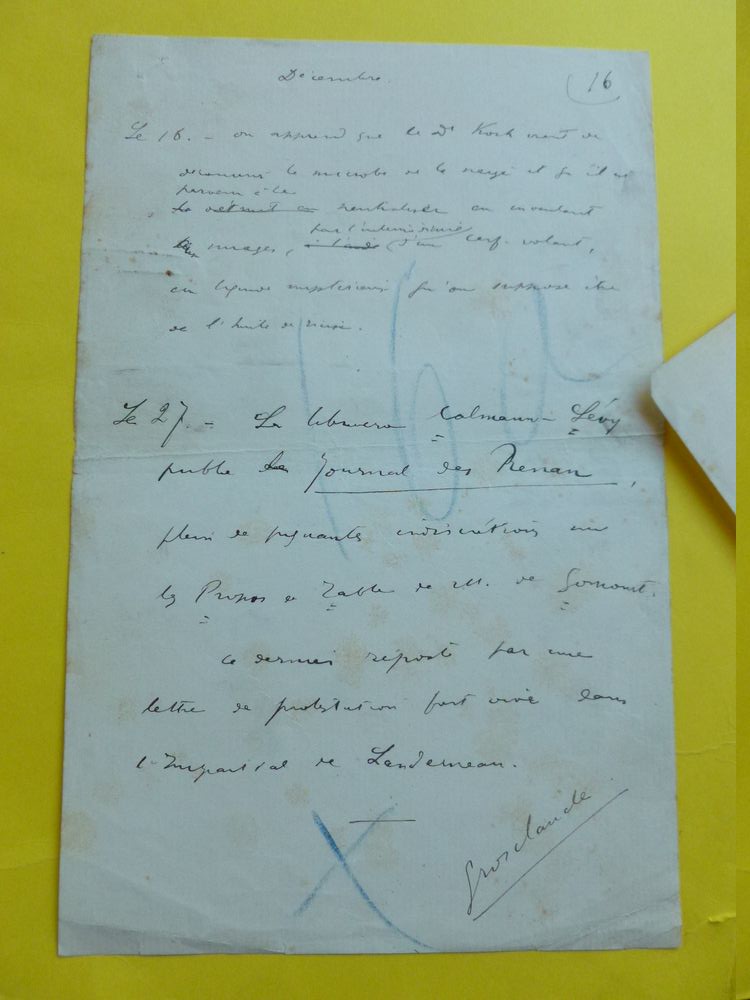 Décembre.
16
Le 16. – on apprend que le Dr Koch vient de
découvrir le microbe de la neige et qu'il est
parvenu à le
le détruit en neutraliser en inoculant
aux nuages, par l'intermédiaire d'un cerf-volant,
un liquide mystérieux qu'on suppose être
de l'huile de ricin.
160
Le 27. – La librairie Calmann-Lévy
publie le Journal des Renan,
plein de piquantes indiscrétions sur
les Propos de Table de M. de Goncourt.
Ce dernier riposte par une
lettre de protestation fort vive dans
l'Impartial de Landerneau.
Grosclaude